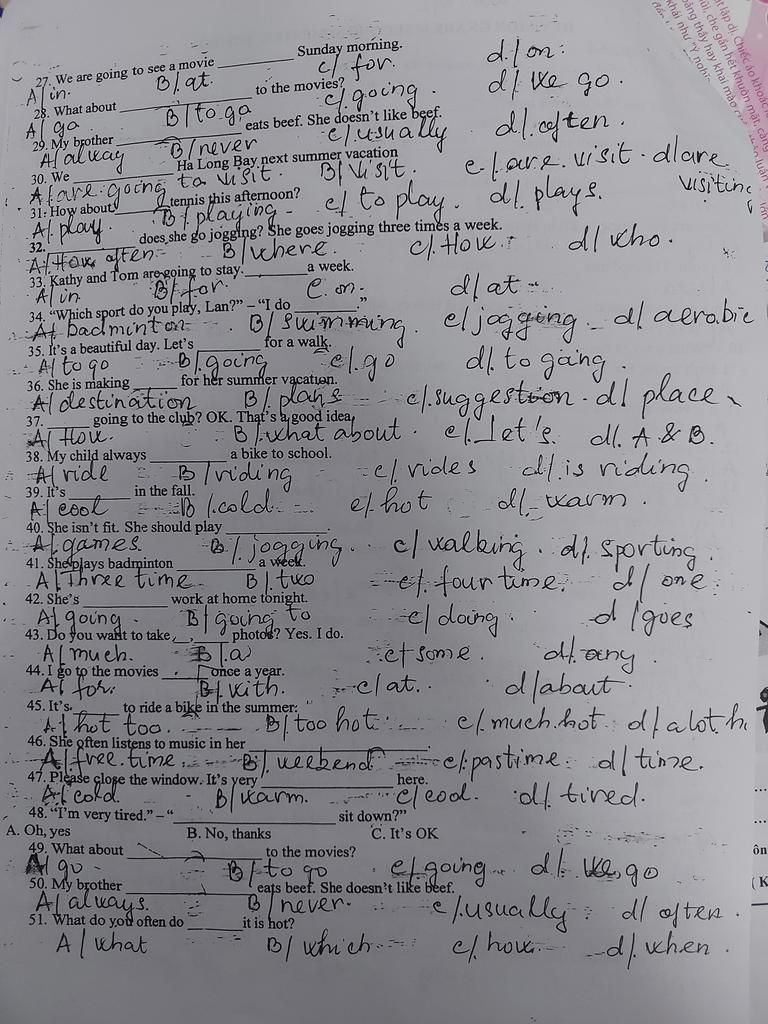 27. We are going to see a movie ________ Sunday morning.
A/in. B/.at. c/ for. d./on.
28. What about ________ to the movies?
A/ go B/to go c/.going. d/ we go.
29. My brother ________ eats beef. She doesn't like beef.
A/alway B/never c/.usually d/.often.
30. We ________ Ha Long Bay next summer vacation
A/are going to visit. B/.visit. c/.are.visit. d/are visiting
31. How about ________ tennis this afternoon?
A/.play. B/.playing c/ to play. d/.plays.
32. ________ does she go jogging? She goes jogging three times a week.
A/.How often B/where. c/.How. d/who.
33. Kathy and Tom are going to stay. ________ a week.
A/in B/.for. c.on. d/at
34. "Which sport do you play, Lan?" – "I do ________."
A/ badminton B/.swimming. c/jogging d/aerobic
35. It's a beautiful day. Let's ________ for a walk.
A/to go B/.going c/.go d/.to going.
36. She is making ________ for her summer vacation.
A/destination B/.plans c/.suggestion. d/ place
37. ________ going to the club? OK. That's a good idea.
A/How. B/.what about. c/.Let's. d/. A & B.
38. My child always ________ a bike to school.
A/ride B/riding c/.rides d/.is riding.
39. It's ________ in the fall.
A/cool B/.cold. c/hot d/.warm.
40. She isn't fit. She should play ________.
A/games. B/.jogging. c/walking. d/.sporting.
41. She plays badminton ________ a week.
A/Three time B/.two c/.four time. d/one.
42. She's ________ work at home tonight.
A/going. B/going to c/doing. d/goes
43. Do you want to take ________ photos? Yes. I do.
A/much. B/.a c/some. d/.any.
44. I go to the movies ________ once a year.
A/for. B/.with. c/at. d/about.
45. It's ________ to ride a bike in the summer.
A/hot too. B/too hot. c/.much.hot. d/alot h
46. She often listens to music in her ________.
A/free.time. B/.weekend c/.pastime. d/time.
47. Please close the window. It's very ________ here.
A/cold. B/warm. c/cool. d/.tired.
48. "I'm very tired." – "________ sit down?"
A. Oh, yes B. No, thanks C. It's OK
49. What about ________ to the movies?
A/go B/to go c/.going d/.We go
50. My brother ________ eats beef. She doesn't like beef.
A/always. B/never. c/.usually. d/often.
51. What do you often do ________ it is hot?
A/what B/which c/.how. d/.when.